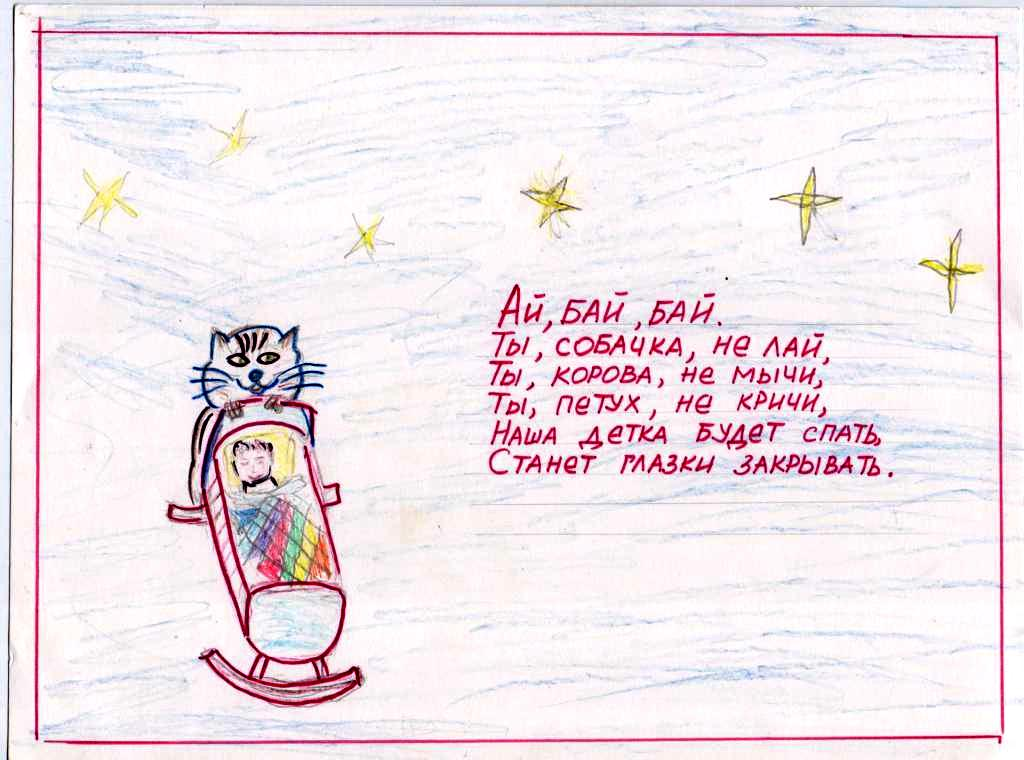 Ай, бай, бай.
Ты, собачка, не лай,
Ты, корова, не мычи,
Ты, петух, не кричи,
Наша детка будет спать,
Станет глазки закрывать.